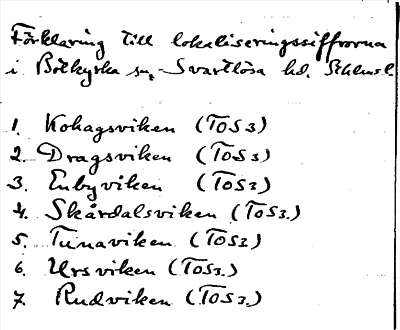 Förklaring till lokaliseringssiffrorna
i Botkyrka sn, Svartlösa hd. Sthlms l
1. Kohagsviken (TOS3)
2. Dragsviken (TOS3)
3. Enbyviken (TOS2)
4. Skårdalsviken (TOS3.)
5. Tunaviken (TOS2)
6. Ursviken (TOS3.)
7. Rudviken (TOS3.)